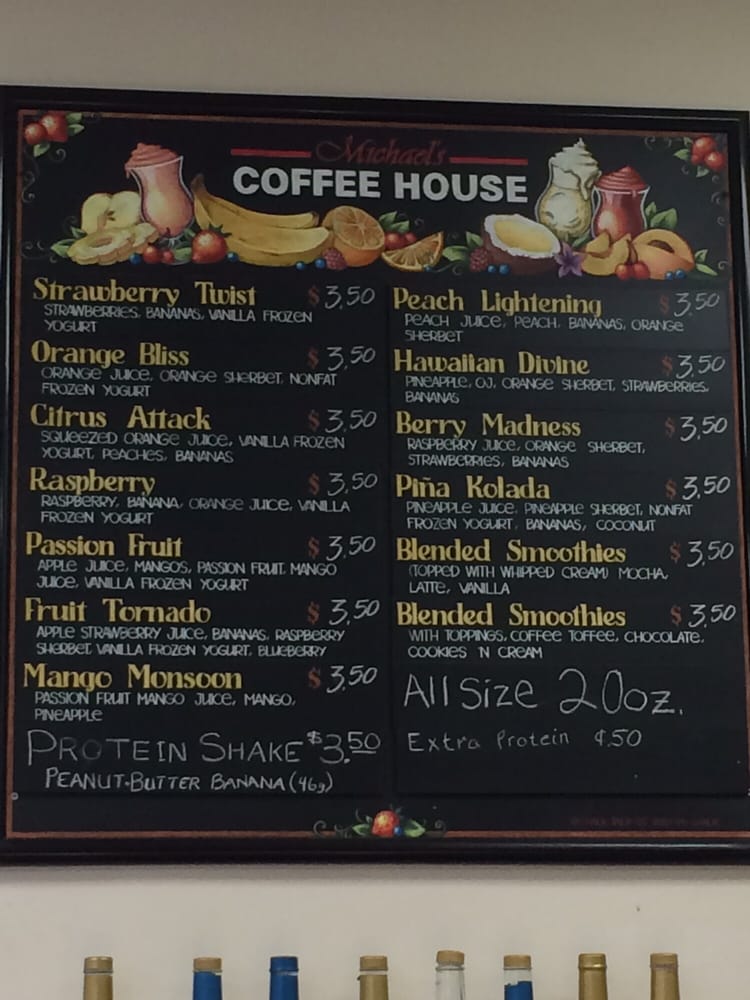 Michael's
COFFEE HOUSE
Strawberry Twist $3.50
STRAWBERRIES, BANANAS, VANILLA FROZEN
YOGURT
Orange Bliss $3.50
ORANGE JUICE, ORANGE SHERBET, NONFAT
FROZEN YOGURT
Citrus Attack $3.50
SQUEEZED ORANGE JUICE, VANILLA FROZEN
YOGURT, PEACHES, BANANAS
Raspberry $3.50
RASPBERRY, BANANA, ORANGE JUICE, VANILLA
FROZEN YOGURT
Passion Fruit $3.50
APPLE JUICE, MANGOS, PASSION FRUIT MANGO
JUICE, VANILLA FROZEN YOGURT
Fruit Tornado $3.50
APPLE STRAWBERRY JUICE, BANANAS, RASPBERRY
SHERBET, VANILLA FROZEN YOGURT, BLUEBERRY
Mango Monsoon $3.50
PASSION FRUIT MANGO JUICE, MANGO,
PINEAPPLE
PROTEIN SHAKE $3.50
PEANUT-BUTTER BANANA (46g)
Peach Lightening $3.50
PEACH JUICE, PEACH, BANANAS, ORANGE
SHERBET
Hawaiian Divine $3.50
PINEAPPLE, OJ, ORANGE SHERBET, STRAWBERRIES,
BANANAS
Berry Madness $3.50
RASPBERRY JUICE, ORANGE SHERBET,
STRAWBERRIES, BANANAS
Piña Kolada $3.50
PINEAPPLE JUICE, PINEAPPLE SHERBET, NONFAT
FROZEN YOGURT, BANANAS, COCONUT
Blended Smoothies $3.50
(TOPPED WITH WHIPPED CREAM) MOCHA,
LATTE, VANILLA
Blended Smoothies $3.50
WITH TOPPINGS, COFFEE TOFFEE, CHOCOLATE,
COOKIES 'N CREAM
All Size 20oz.
Extra Protein ¢.50